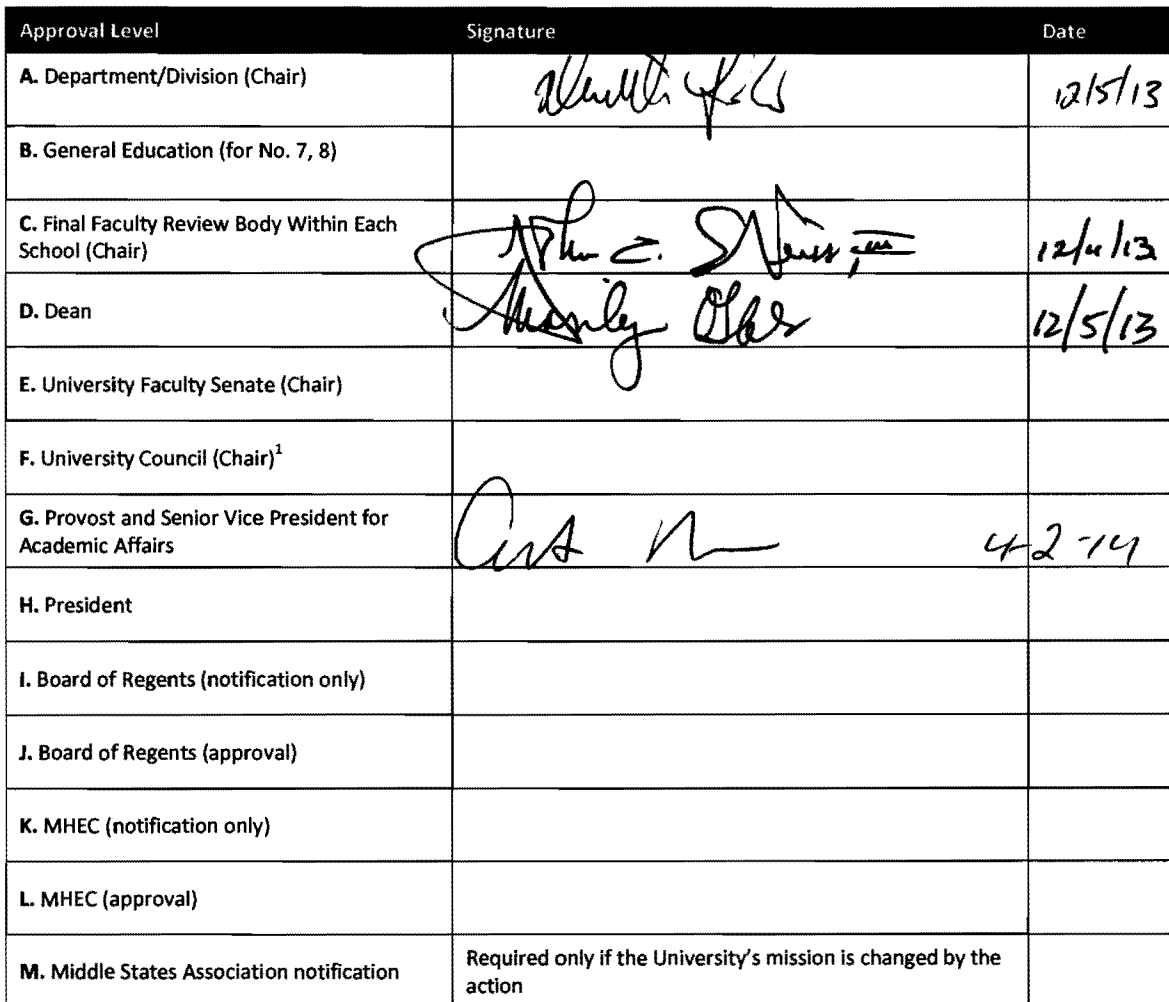 Approval Level Signature Date
A. Department/Division (Chair) 12/5/13
B. General Education (for No. 7, 8)
C. Final Faculty Review Body Within Each
School (Chair)
D. Dean 12/5/13
E. University Faculty Senate (Chair)
F. University Council (Chair)¹
G. Provost and Senior Vice President for
Academic Affairs 4-2-14
H. President
I. Board of Regents (notification only)
J. Board of Regents (approval)
K. MHEC (notification only)
L. MHEC (approval)
M. Middle States Association notification Required only if the University's mission is changed by the
action